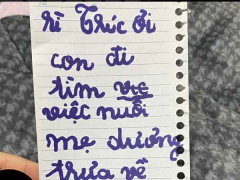 rì Trúc ơi
con đi
tìm việc
việc nuôi
mẹ dương
trưa về